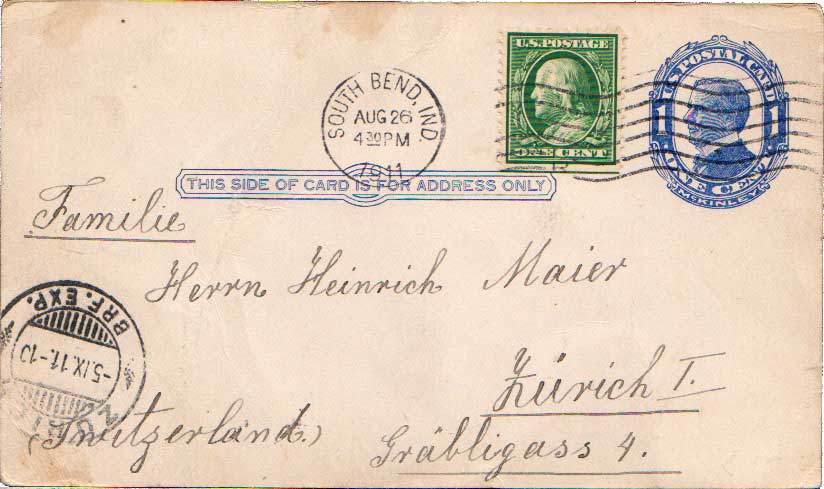 U.S. POSTAGE
ONE CENT
U.S. POSTAL CARD
1 1
ONE CENT
McKINLEY
SOUTH BEND, IND.
AUG 26
4 30 PM
1911
THIS SIDE OF CARD IS FOR ADDRESS ONLY
Familie
Herrn Heinrich Maier
Zürich I.
Gräbligass 4.
(Switzerland.)
BRF. EXP.
-5.IX.11.-10